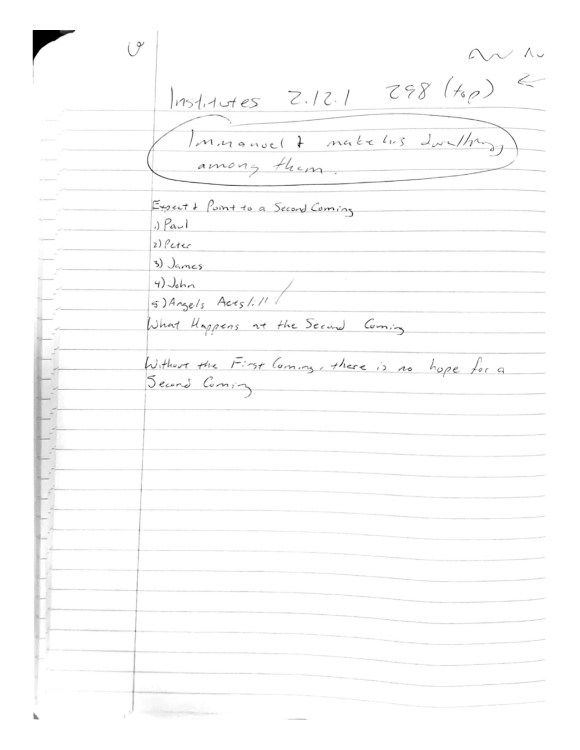 Institutes 2.12.1 298 (top) ←
Immanuel & make his dwelling,
among them.
Expect & Point to a Second Coming
1) Paul
2) Peter
3) James
4) John
5) Angels Acts 1:11
What Happens at the Second Coming
Without the First Coming, there is no hope for a
Second Coming